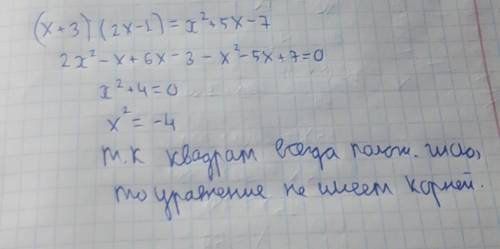 (x+3)(2x-1)=x²+5x-7
2x²-x+6x-3-x²-5x+7=0
x²+4=0
x²=-4
т.к квадрат всегда полож. число,
то уравнение не имеет корней.